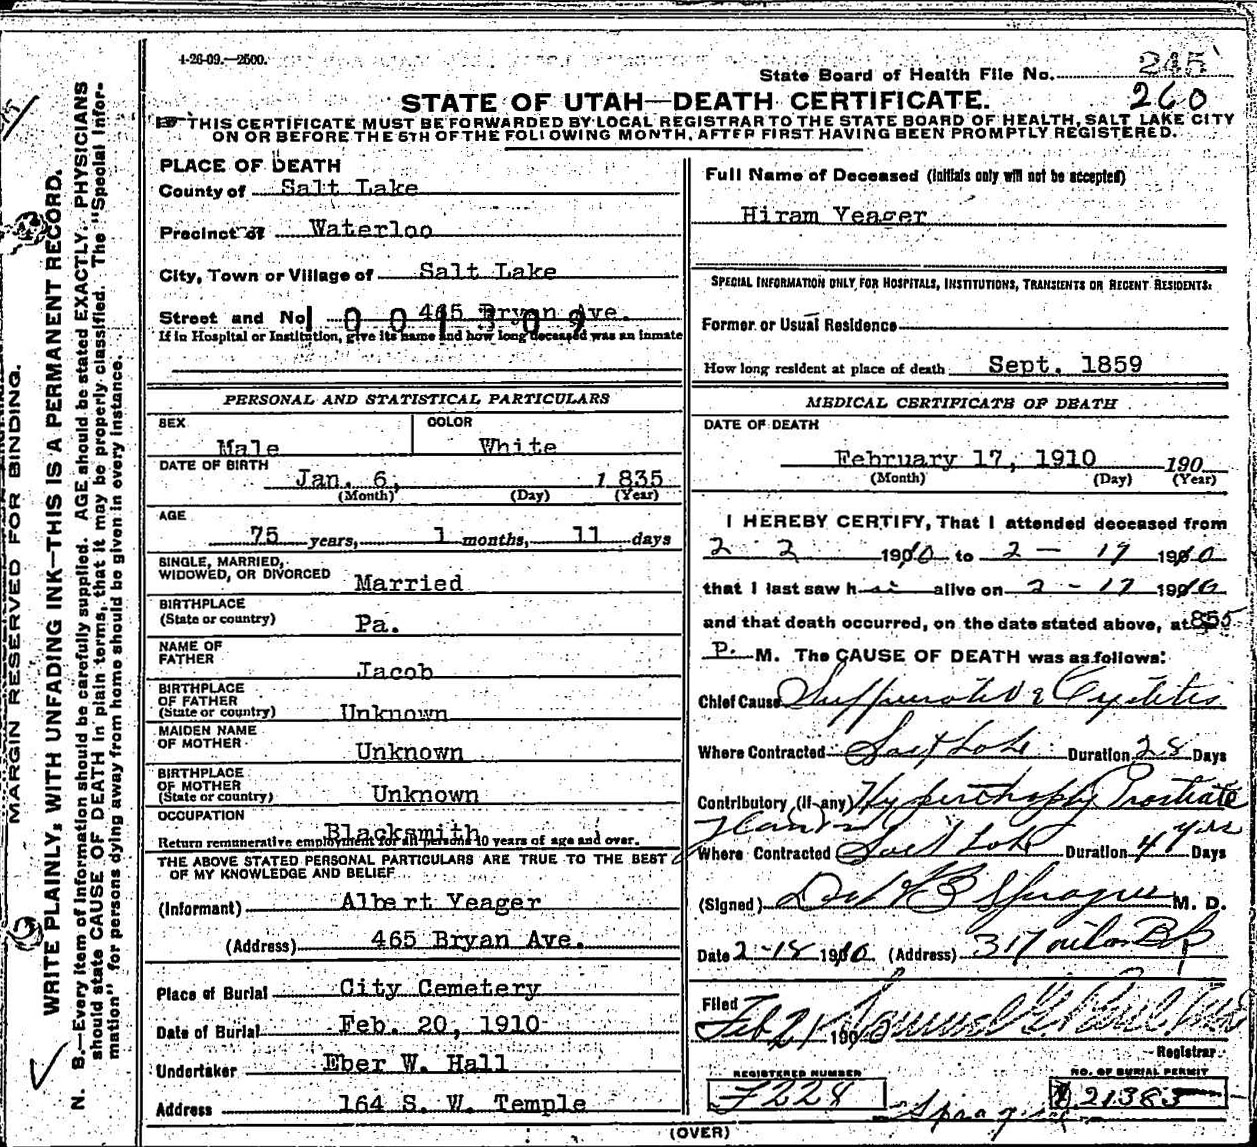 4-26-09.—2500.
State Board of Health File No. 245
260
STATE OF UTAH—DEATH CERTIFICATE.
THIS CERTIFICATE MUST BE FORWARDED BY LOCAL REGISTRAR TO THE STATE BOARD OF HEALTH, SALT LAKE CITY
ON OR BEFORE THE 5TH OF THE FOLLOWING MONTH, AFTER FIRST HAVING BEEN PROMPTLY REGISTERED.
MARGIN RESERVED FOR BINDING.
WRITE PLAINLY, WITH UNFADING INK—THIS IS A PERMANENT RECORD.
N. B.—Every item of information should be carefully supplied. AGE should be stated EXACTLY. PHYSICIANS
should state CAUSE OF DEATH in plain terms, that it may be properly classified. The "Special Infor-
mation" for persons dying away from home should be given in every instance.
PLACE OF DEATH
County of Salt Lake
Precinct of Waterloo
City, Town or Village of Salt Lake
Street and No 465 Bryan Ave.
001309
If in Hospital or Institution, give its name and how long deceased was an inmate
PERSONAL AND STATISTICAL PARTICULARS
SEX
Male
COLOR
White
DATE OF BIRTH
Jan. 6, 1835
(Month) (Day) (Year)
AGE
75 years, 1 months, 11 days
SINGLE, MARRIED,
WIDOWED, OR DIVORCED Married
BIRTHPLACE
(State or country) Pa.
NAME OF
FATHER Jacob
BIRTHPLACE
OF FATHER
(State or country) Unknown
MAIDEN NAME
OF MOTHER Unknown
BIRTHPLACE
OF MOTHER
(State or country) Unknown
OCCUPATION
Blacksmith
Return remunerative employment for all persons 10 years of age and over.
THE ABOVE STATED PERSONAL PARTICULARS ARE TRUE TO THE BEST
OF MY KNOWLEDGE AND BELIEF
(Informant) Albert Yeager
(Address) 465 Bryan Ave.
Place of Burial City Cemetery
Date of Burial Feb. 20, 1910
Undertaker Eber W. Hall
Address 164 S. W. Temple
Full Name of Deceased (Initials only will not be accepted)
Hiram Yeager
SPECIAL INFORMATION ONLY FOR HOSPITALS, INSTITUTIONS, TRANSIENTS OR RECENT RESIDENTS:
Former or Usual Residence
How long resident at place of death Sept. 1859
MEDICAL CERTIFICATE OF DEATH
DATE OF DEATH
February 17, 1910 190
(Month) (Day) (Year)
I HEREBY CERTIFY, That I attended deceased from
2 2 1910 to 2 — 17 1910
that I last saw h alive on 2 - 17 1910
and that death occurred, on the date stated above, at 855
P. M. The CAUSE OF DEATH was as follows:
Chief Cause Suppurative Cystitis
Where Contracted Salt Lake Duration 28 Days
Contributory (if any) Hypertrophy Prostate
Where Contracted Salt Lake Duration 4 yrs Days
(Signed) Sprague M. D.
Date 2-18 1910 (Address) 317
Filed
Feb 21 190 Samuel G. Paul
Registrar
REGISTERED NUMBER
F228
NO. OF BURIAL PERMIT
21383
Sprague
(OVER)